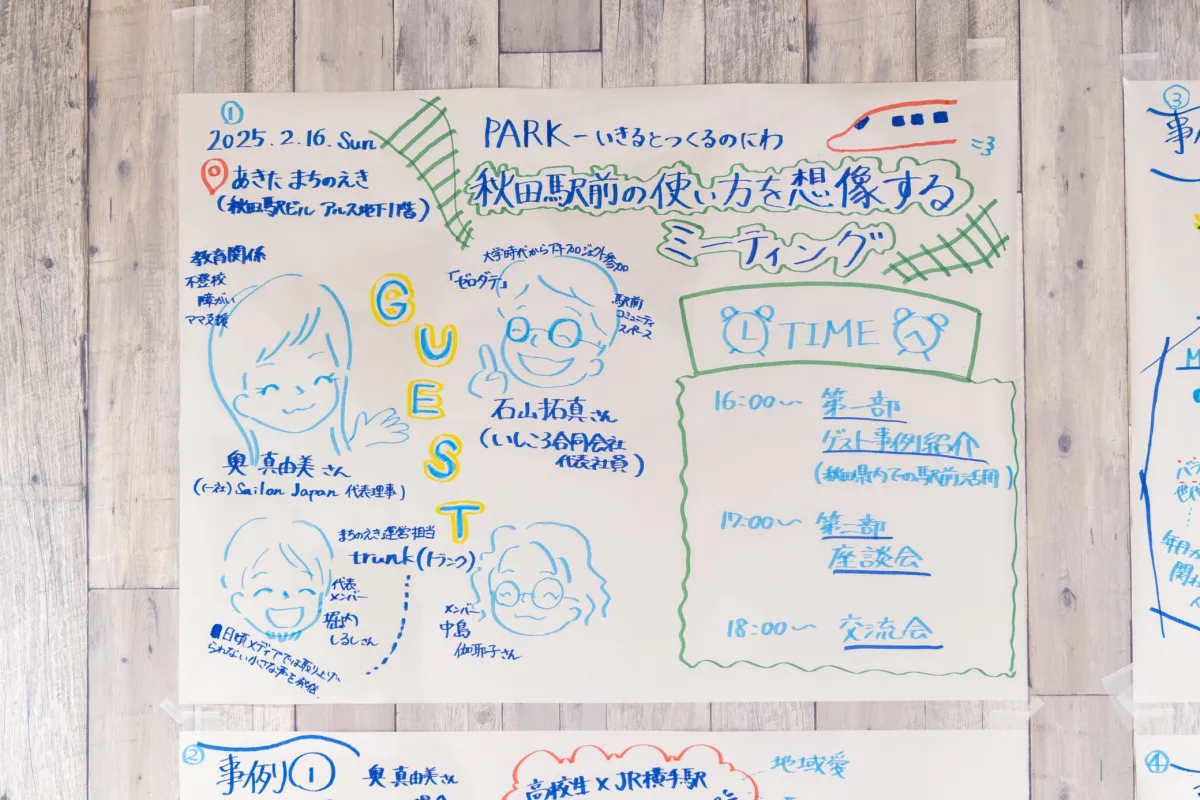 ①
2025.2.16.Sun
あきた まちのえき
(秋田駅ビル アルス地下1階)
PARK－いきるとつくるのにわ
秋田駅前の使い方を想像する
ミーティング
教育関係
不登校
障がい
ママ支援
奥 真由美さん
((一社)Sailon Japan 代表理事)
GUEST
大学時代からアートプロジェクト参加
「ゼロダテ」
駅前
コミュニティ
スペース
石山拓真さん
(いしころ合同会社
代表社員)
まちのえき運営担当
trunk(トランク)
代表
メンバー
堀内
しるしさん
日頃メディアでは取り上げ
られない小さな声を発信
メンバー
中島
伽耶子さん
TIME
16:00～ 第一部
ゲスト事例紹介
(秋田県内での駅前活用)
17:00～ 第二部
座談会
18:00～ 交流会
②
事例①
奥 真由美さん
高校生×JR横手駅
地域愛
③
④